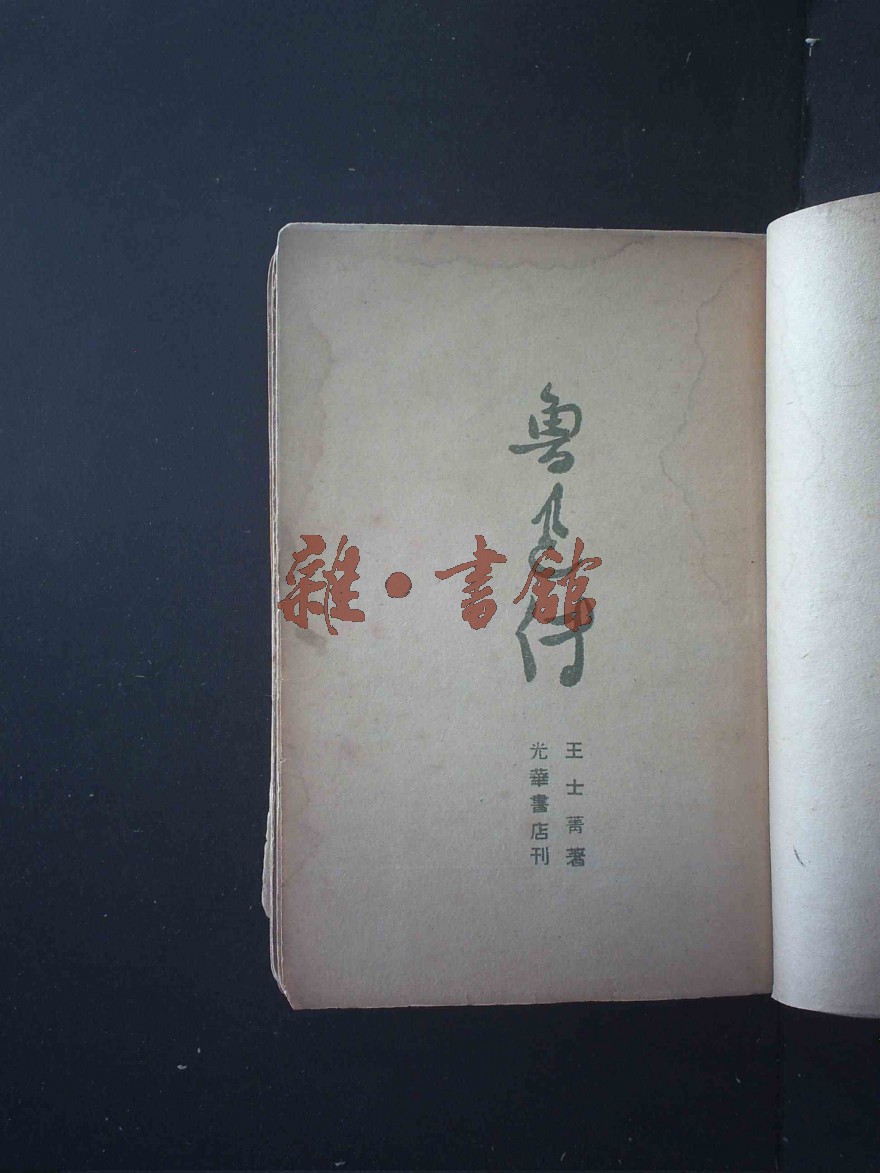 魯迅传
王士菁著
光華書店刊
雜·書舘